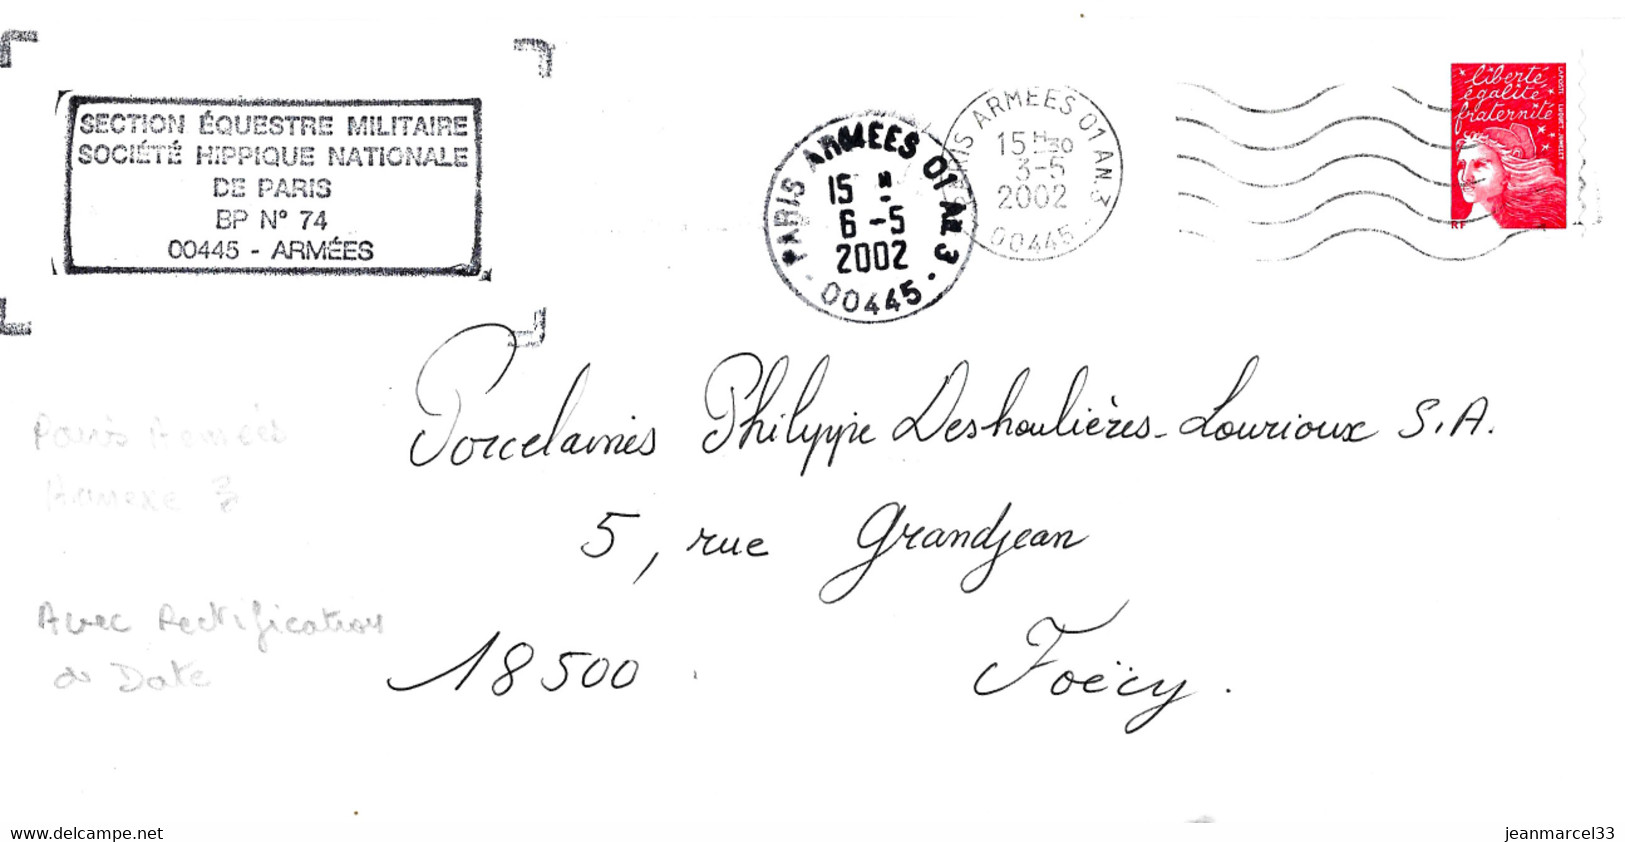 SECTION ÉQUESTRE MILITAIRE
SOCIÉTÉ HIPPIQUE NATIONALE
DE PARIS
BP N° 74
00445 - ARMÉES
PARIS ARMEES 01 AN 3
15 H
6 -5
2002
00445
PARIS ARMEES 01 AN.3
15 H30
3-5
2002
00445
liberté
égalité
fraternité
RF
LA POSTE
Porcelaines Philippe Deshoulières-Lourioux S.A.
5, rue Grandjean
18500 Foëcy.
Paris Armées
Annexe 3
Avec Rectification
de Date
www.delcampe.net
jeanmarcel33